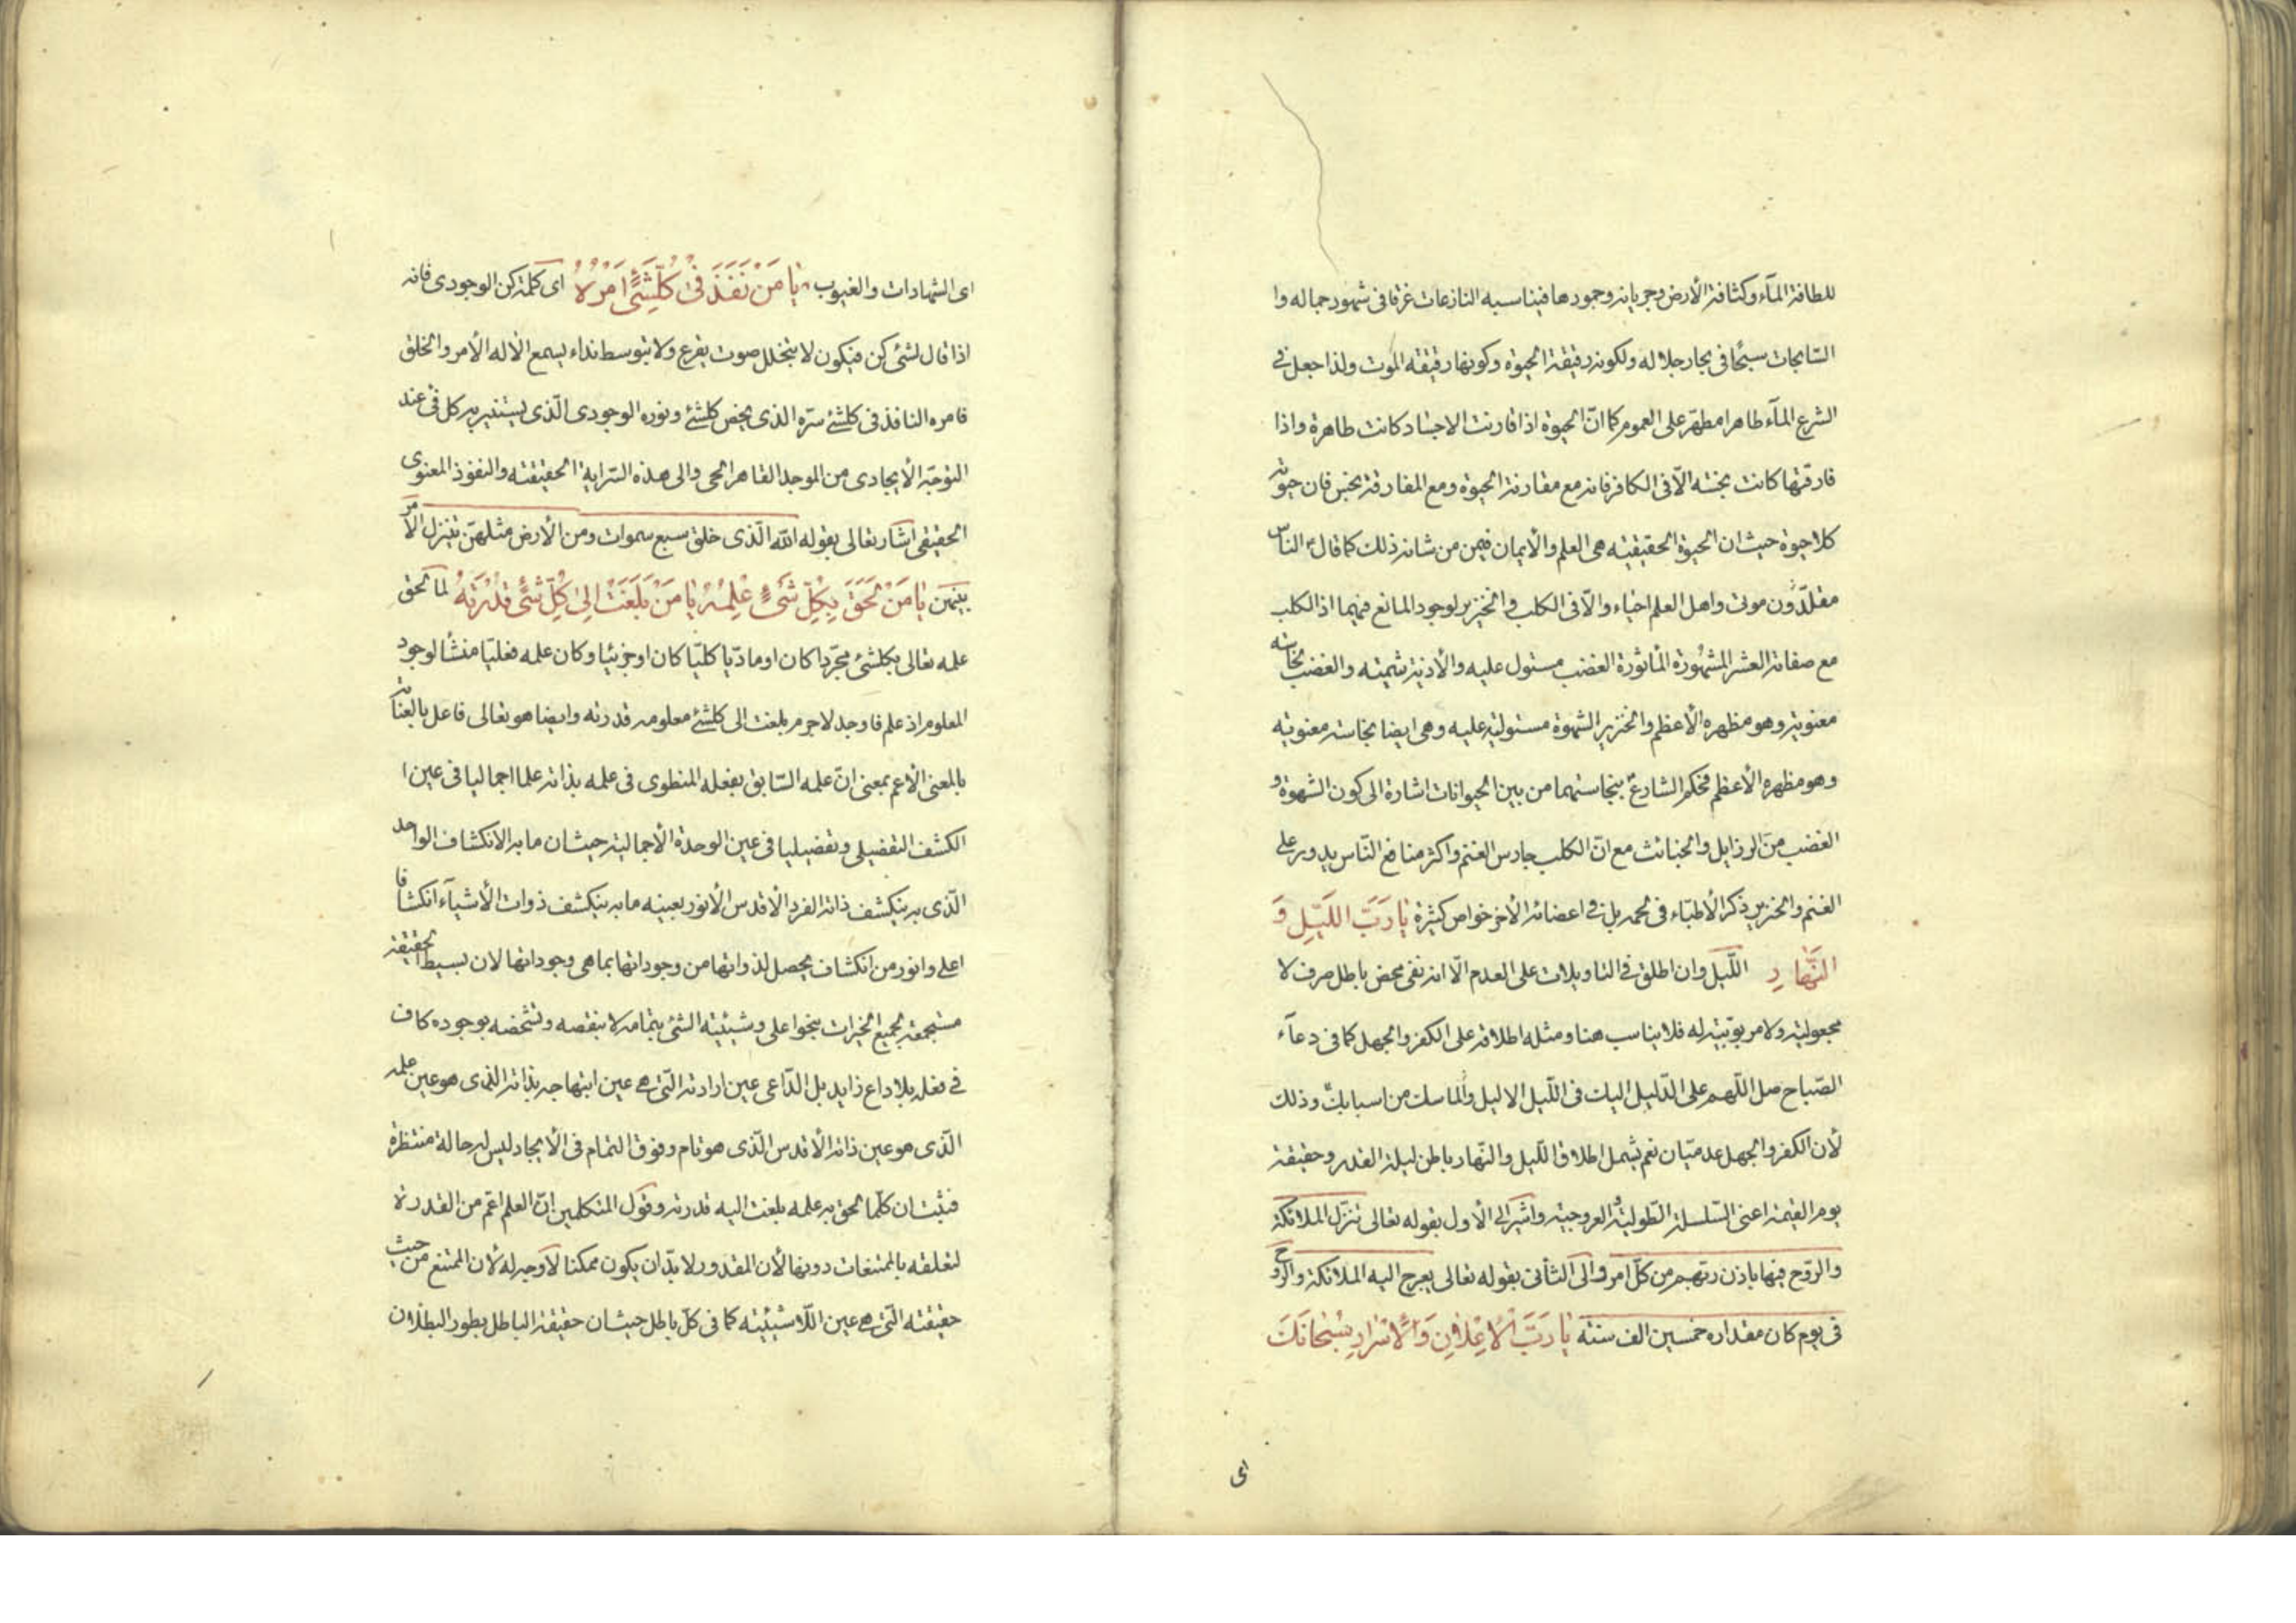 للطافة المآء وكثافة الأرض وجريانه وجمودها فيناسبه النازعات غرقا فى شهود جماله وا
السّابحات سبحًا فى بحار جلاله ولكونه رقيقة الحيوة وكونها رقيقه الموت ولذا جعل فى
الشرع المآء طاهرا مطهّر على العموم كما انّ الحيوة اذا قارنت الاجساد كانت طاهرة واذا
فارقتها كانت نجسه الّا فى الكافر فانه مع مقارنة الحيوة ومع المفارقة نجس فان حيوته
كلا حيوة حيث ان الحيوة الحقيقيه هى العلم والأيمان فيمن من شانه ذلك كما قال ع الناس
مقلّدون موتى واهل العلم احياء والّا فى الكلب والخنزير لوجود المانع فيهما اذ الكلب
مع صفاته العشر المشهورة المأثورة الغضب مستول عليه والأذية شيمته والغضب نجاسه
معنوية وهو مظهره الأعظم والخنزير الشهوة مستولية عليه وهى ايضا نجاسة معنويه
وهو مظهره الأعظم فحكم الشارع بنجاستهما من بين الحيوانات اشارة الى كون الشهوة و
الغضب من الرذايل والخبائث مع انّ الكلب حارس الغنم واكثر منافع النّاس يدور على
الغنم والخنزير ذكر الأطبّاء فى لحمه بل فى اعضائه الأخر خواص كثيرة يَا رَبَّ اللَّيْلِ وَ
النَّهَارِ اللّيل وان اطلق فى التاويلات على العدم الّا انه نفى محض باطل صرف لا
مجعولية ولا مربوبيّة له فلا يناسب هنا ومثله اطلاقه على الكفر والجهل كما فى دعآء
الصّباح صل اللّهم على الدّليل اليك فى اللّيل الاليل والماسك من اسبابك وذلك
لأن الكفر والجهل عدميّان نعم يشمل اطلاق اللّيل والنّهار باطن ليلة القدر وحقيقة
يوم القيمة اعنى السّلسلة الطّولية العروجيه واشير الى الأول بقوله تعالى تنزّل الملائكة
والرّوح فيها باذن ربّهم من كلّ امر والى الثانى بقوله تعالى يعرج اليه الملائكة والروح
فى يوم كان مقداره خمسين الف سنه يَا رَبَّ الْاِعْلَانِ وَالْاَسْرَارِ سُبْحَانَكَ
اى
اى الشهادات والغيوب يَا مَنْ نَفَذَ فِى كُلِّشَىْءٍ اَمْرُهُ اى كلمة كن الوجودى فانه
اذا قال لشئ كن فيكون لا يتخلل صوت يقرع ولا يتوسط نداء يسمع الا له الأمر والخلق
فامره النافذ فى كلشئ سرّه الذى يخص كلشئ ونوره الوجودى الّذى يستنير به كل فى عند
التوجّه الأيجادى من الموجد القاهر الحى والى هذه السّراية الحقيقته والنفوذ المعنوى
الحقيقى اشار تعالى بقوله الله الّذى خلق سبع سموات ومن الأرض مثلهنّ يتنزل الأمر
بينهن يَا مَنْ لَحِقَ بِكُلِّ شَىْءٍ عِلْمُهُ يَا مَنْ بَلَغَتْ اِلىٰ كُلِّ شَىْءٍ قُدْرَتُهُ لما لحق
علمه تعالى بكلشئ مجرّدا كان او مادّيا كليّا كان او جزئيا وكان علمه فعليّا منشأ لوجود
المعلوم اذ علم فاوجد لا جرم بلغت الى كلشئ معلومه قدرته وايضا هو تعالى فاعل بالعناية
بالمعنى الأعم بمعنى انّ علمه السّابق بفعله المنطوى فى علمه بذاته علما اجماليا فى عين ا
الكشف التفصيلى وتفصيليا فى عين الوحدة الأجمالية حيث ان ما به الانكشاف الواحد
الّذى به ينكشف ذاته الفرد الأقدس الأنور بعينه ما به ينكشف ذوات الأشيآء انكشافا
اعلى وانور من انكشاف يحصل لذواتها من وجوداتها بما هى وجوداتها لان بسيط الحقيقة
مستجمعة لجميع الخيرات بنحو اعلى وشيئية الشئ بتمامه لا بنقصه وتشخصه بوجوده كاف
فى فعله بلا داع زايد بل الدّاعى عين ارادته الّتى هى عين ابتهاجه بذاته الذى هو عين علمه
الّذى هو عين ذاته الأقدس الّذى هو تام وفوق التمام فى الأيجاد ليس له حالة منتظرة
فثبت ان كلّما لحق به علمه بلغت اليه قدرته وقول المتكلمين انّ العلم اعمّ من القدرة
لتعلقه بالممتنعات دونها لأن المقدور لا بدّ ان يكون ممكنا لا وجه له لأن الممتنع من حيث
حقيقته الّتى هى عين اللّا شيئيه كما فى كلّ باطل حيث ان حقيقة الباطل بطور البطلان